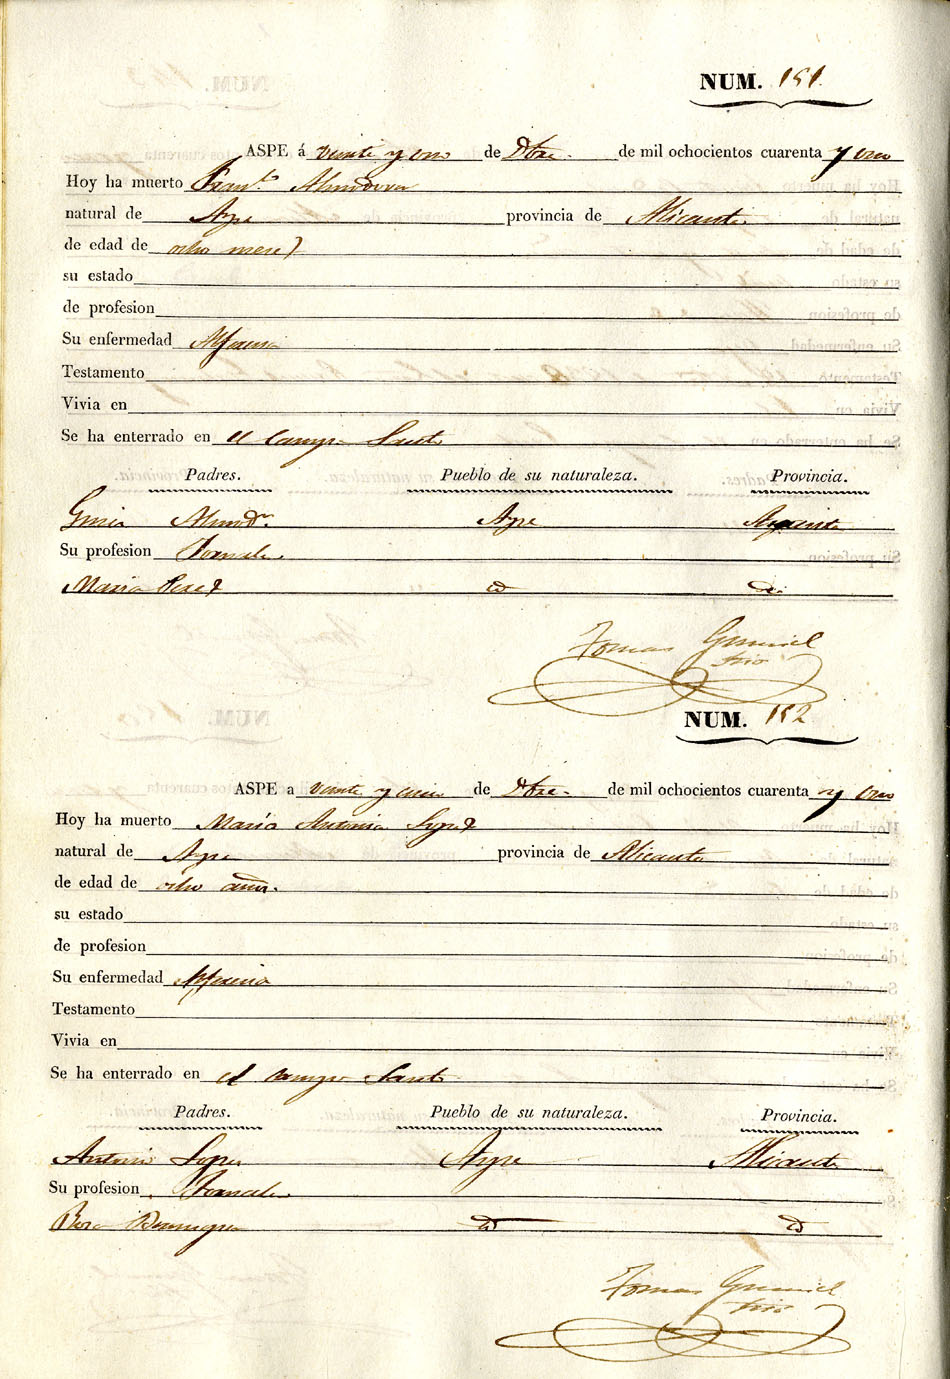 NUM. 151
ASPE á veinte y uno de Dbre. de mil ochocientos cuarenta y uno
Hoy ha muerto Fran.co Almodovar
natural de Aspe provincia de Alicante
de edad de ocho meses
su estado
de profesion
Su enfermedad
Testamento
Vivia en
Se ha enterrado en el Campo Santo
Padres. Pueblo de su naturaleza. Provincia.
Almodr. Aspe Alicante
Su profesion Jornalero
Maria Perez id id
Tomas
NUM. 152
ASPE a veinte y de Dbre. de mil ochocientos cuarenta y uno
Hoy ha muerto María Antonia Lopez
natural de Aspe provincia de Alicante
de edad de ocho años.
su estado
de profesion
Su enfermedad
Testamento
Vivia en
Se ha enterrado en el Campo Santo
Padres. Pueblo de su naturaleza. Provincia.
Antonio Lopez Aspe Alicante
Su profesion Jornalero
id id
Tomas